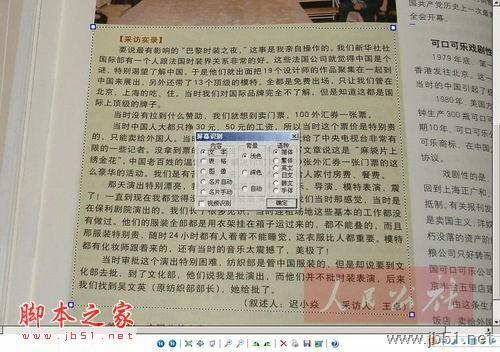 国共产党历史上一次最
会全开幕。
【采访实录】
要说最有影响的“巴黎时装之夜，”这事是我亲自操作的。我们新华社社
国际部有一个人跟法国时装界关系非常的好。这些法国公司就觉得中国是个
谜，特别渴望了解中国。于是他们就出面把19个设计师的作品聚集在一起到
中国来展出，另外还带了13个顶级的模特。全都是免费出场，只让我们管在
北京、上海的吃、住。当时我们对国际品牌完全不了解，但是知道这都是国
际上顶级的牌子。
当时没有拉到什么赞助，我们就想到卖门票，100外汇券一张。
当时中国人大都只挣30元、50元的工资，所以当时这个票价是特别贵
的，只能卖给外国人。当
给了中央电视台非常有
限的一些记者。没拿到票的
文章说这是“麻袋片上
绣金花”，中国老百姓的温
张外汇券一张门票的这
么豪华的活动。我们是有苦
人家付房费、餐费。
那天演出特别漂亮，我
、导演、模特表演，震
了！一直到现在我都觉得没
们当时那感觉，当时是
在保利剧院演出的。我们长了很多见识，当时连租场地这些基本的工作都没
有做过。他们的服装全部都是用衣架挂在箱子运过来的，都不能叠的，而且
那服装特别贵，随时24小时都有人看着不能睡觉，这衣服比人都重要。模特
都有化妆师跟着来的，还有当时的音乐太震撼了，美极了！
当时审批这个演出特别困难，纺织部是管中国服装的，但是却说要到文
化部去批，到了文化部，他们说我是演出，而他们并不批时装表演，后来
我们找到吴文英（原纺织部部长），她给批了。
（叙述人：迟小焱 采访人：王
屏幕识别
内容
背景
语种
文本
表格
图像
名片自动
名片手动
浅色
深色
自动
简体
繁体
英文
日文
韩文
手体
视频识别
确定
可口可乐戏剧性
1979年底，第一
香港发往北京，这
引起
1980年，美国
外可口可乐
期10年，可口可乐
到中国。
戏剧性的
回到上海正广和
抵制，有领导
是卖国主义、洋奴
朽没落的资产阶
粮公司只好转而
国，
京丰台五里店
饭店，卖给外国
人民画报社
脚本之家
www.jb51.net
www.jb51.net